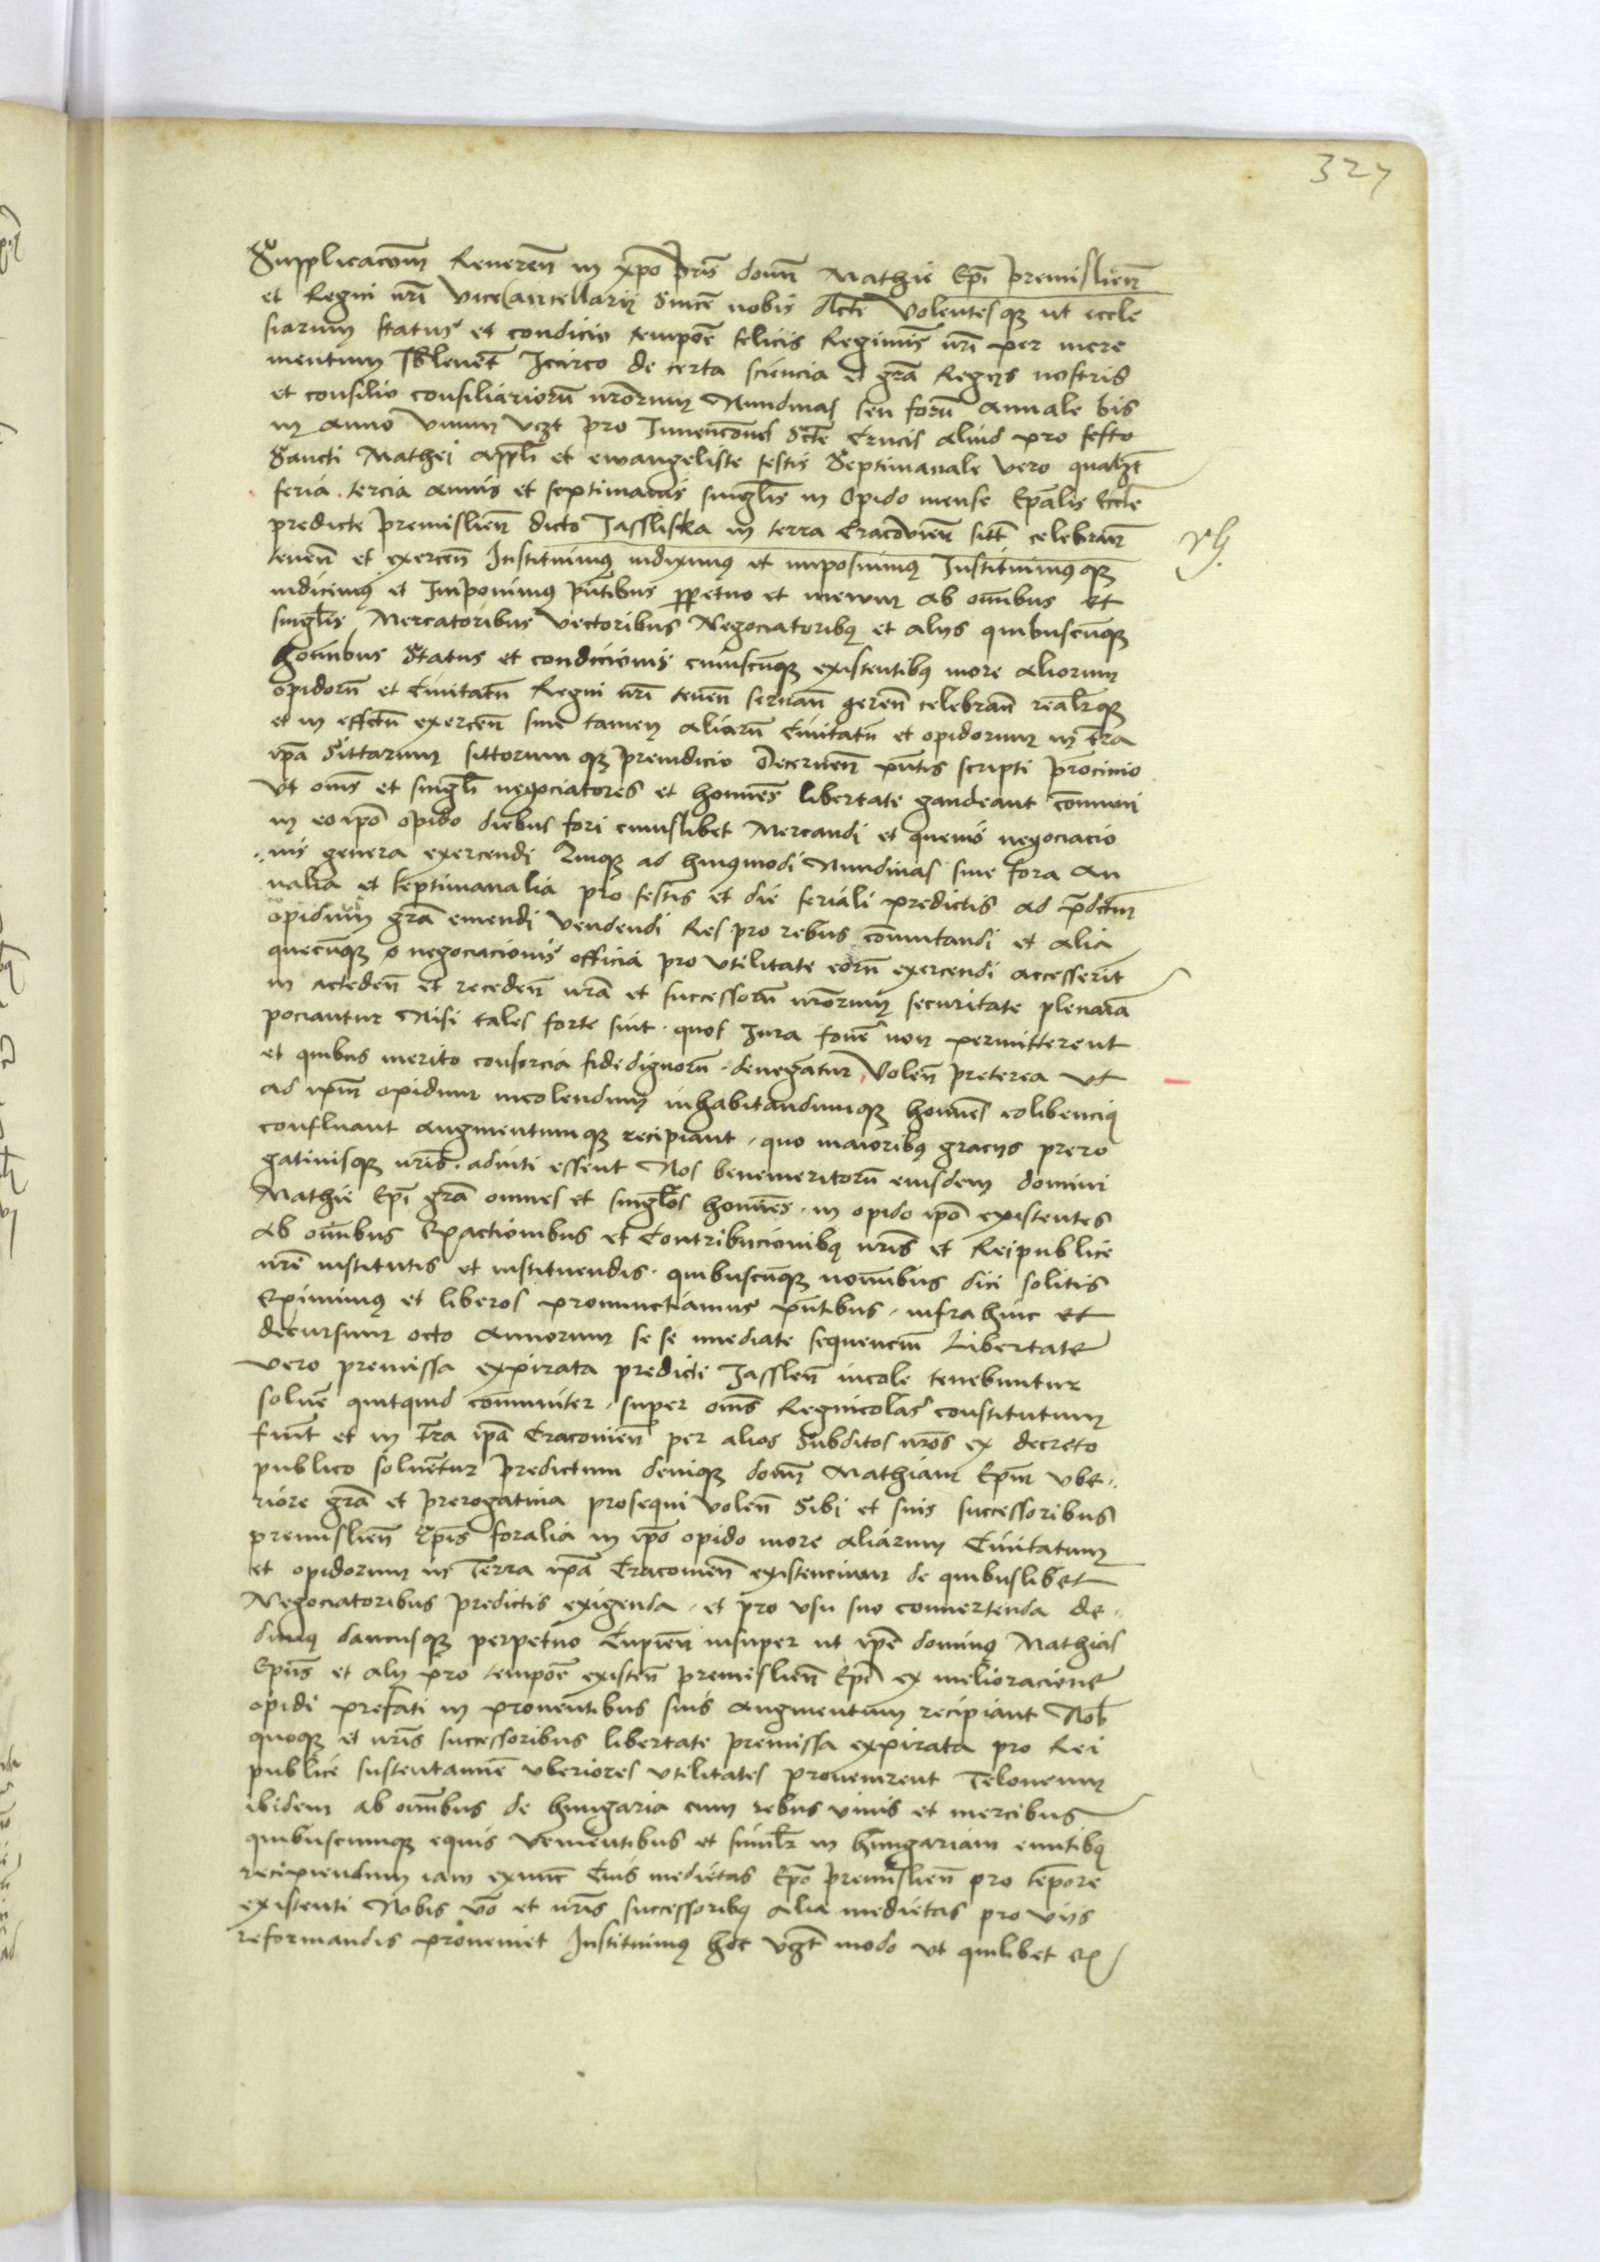 327
Supplicacōm Reuerenn̄ in xpo pr̄is domn̄ Mathie Epī premislien̄
et Regni nrī Vicecancellarij sincē nobis dictē Volentesqȝ ut eccle
siarum status et condicio tempoē felicis Regiminis nrī per incre
mentum Icirco de certa sciencia et grā Regijs nostris
et consilio consiliariorū nrōrum Nundinas seu forū annale bis
in anno vnum vcȝt pro Inuencōnes scte Crucis aliud pro festo
Sancti Mathei appli et ewangeliste festis Septimanale vero qualȝt
feria tercia annis et septimanis singlis in opido mense Epalis Eccle
predicte premislien̄ dicto Jassliska in terra Cracovien̄ sitt celebran̄
tenen̄ et exercen̄ Instituimus indiximus et imposuimus Instituimusqȝ
indicimus et Imponimus pn̄tibus perpetuo et in ewum ab omībus et
singlis Mercatoribus Vectoribus Negociatoribus et alijs quibuscūqȝ
homībus Status et condicionis cuiuscūqȝ existentibus more aliorum
opidorū et Ciuitatū Regni nrī tenen̄ seruan̄ geren̄ celebran̄ realrqȝ
et in effctū exercen̄ sine tamen aliarū Ciuitatū et opidorum in tra
ipa Sittarum sittorumqȝ preiudicio Decernen̄ pn̄tis scripti
Vt oms et singli negociatores et homīes libertate gaudeant cōmuni
in eo ipo opido diebus fori cuiuslibet Mercandi et queuis negociacio
nis genera exercendi Quiqȝ ad huiusmodi Nundinas siue fora an
nalia et septimanalia pro festis et die feriali predictis ad pdctm
opidum grā emendi vendendi Res pro rebus cōmutandi et alia
quecūqȝ negociacionis officia pro vtilitate eorū exercendi accesserit
in acceden̄ et receden̄ nrā et successorū nrōrum securitate plenaria
pociantur Nisi tales forte sint quos Jura fouē non permitterent
et quibus merito consorcia fide dignorū denegatur Volen̄ preterea vt
ad ipm opidum incolendum inhabitandumqȝ homīes eolibencius
confluant augmentumqȝ recipiant quo maioribus gracijs prero
gatiuisqȝ nrīs adiuti essent Nos benemeritorū eiusdem domini
Mathie Epī grā omnes et singlos homīes in opido ipo existentes
ab omībus Exactionibus et Contribucionibus nrīs et Reipublice
nrē institutis et instituendis quibuscūqȝ nomībus dici solitis
Eximimus et liberos pronunctiamus pn̄tibus infra hinc et
decursum octo annorum se se imediate sequencīm Libertate
vero premissa expirata predicti Jasslen̄ incole tenebuntur
soluē quitquid cōmuniter super oms Regnicolas constitutum
fuit et in Tra ipa Cracouien̄ per alios Subditos nros ex decreto
publico soluetur predictum deniqȝ domn̄ Mathiam Epm vbe
riore grā et prerogatiua prosequi volen̄ Sibi et suis successoribus
premislien̄ Epis foralia in ipo opido more aliarum Ciuitatum
et opidorum in Terra ipa Cracouien̄ existencium de quibuslibet
Negociatoribus predictis exigenda et pro vsu suo conuertenda de
dimus damusqȝ perpetuo Cupien̄ insuper ut ipe dominus Mathias
Epus et alij pro tempoē existen̄ premislien̄ Epi ex melioracione
opidi prefati in prouentibus suis augmentum recipiant Nob
quoqȝ et nrīs successoribus libertate premissa expirata pro Rei
publice sustentamīe vberiores vtilitates prouenirent Teloneum
ibidem ab omībus de hungaria cum rebus vinis et mercibus
quibuscumqȝ equis venientibus et simlr in hungariam euntibus
recipiendum iam exnunc Cuius medietas Epo premislien̄ pro tempore
existenti Nobis vo et nrīs successoribus alia medietas pro vijs
reformandis proueniet Instituimus hoc vcȝt modo vt quilibet ex